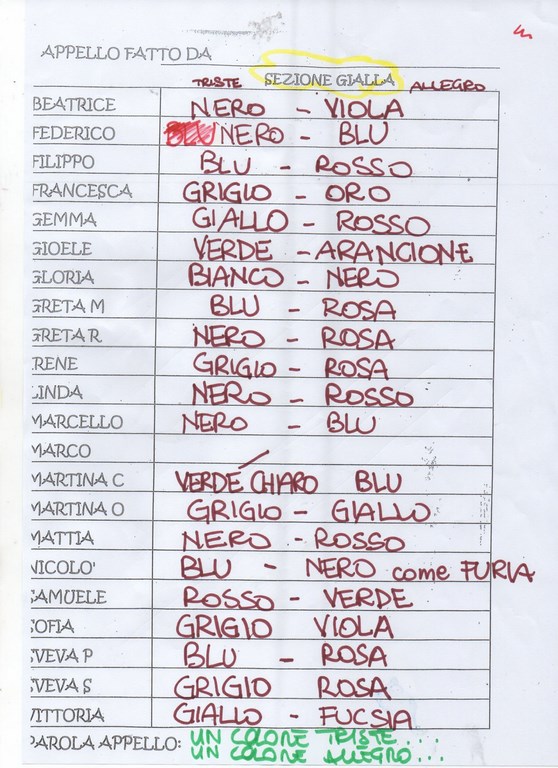 APPELLO FATTO DA
TRISTE SEZIONE GIALLA ALLEGRO
BEATRICE NERO - VIOLA
FEDERICO BLU NERO - BLU
FILIPPO BLU - ROSSO
FRANCESCA GRIGIO - ORO
GEMMA GIALLO - ROSSO
GIOELE VERDE - ARANCIONE
GLORIA BIANCO - NERO
GRETA M BLU - ROSA
GRETA R NERO - ROSA
IRENE GRIGIO - ROSA
LINDA NERO - ROSSO
MARCELLO NERO - BLU
MARCO /
MARTINA C VERDE CHIARO BLU
MARTINA O GRIGIO - GIALLO
MATTIA NERO - ROSSO
NICOLO' BLU - NERO come FURIA
SAMUELE ROSSO - VERDE
SOFIA GRIGIO VIOLA
SVEVA P BLU - ROSA
SVEVA S GRIGIO ROSA
VITTORIA GIALLO - FUCSIA
PAROLA APPELLO: UN COLORE TRISTE...
UN COLORE ALLEGRO...